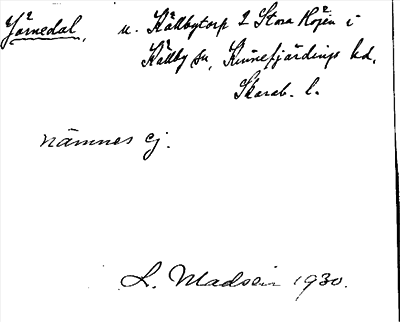 Järnedal, u. Källbytorp 2 Stora Höjen i
Källby sn, Kinnefjärdings hd,
Skarab. l.
nämnes ej.
L. Madsén 1930.